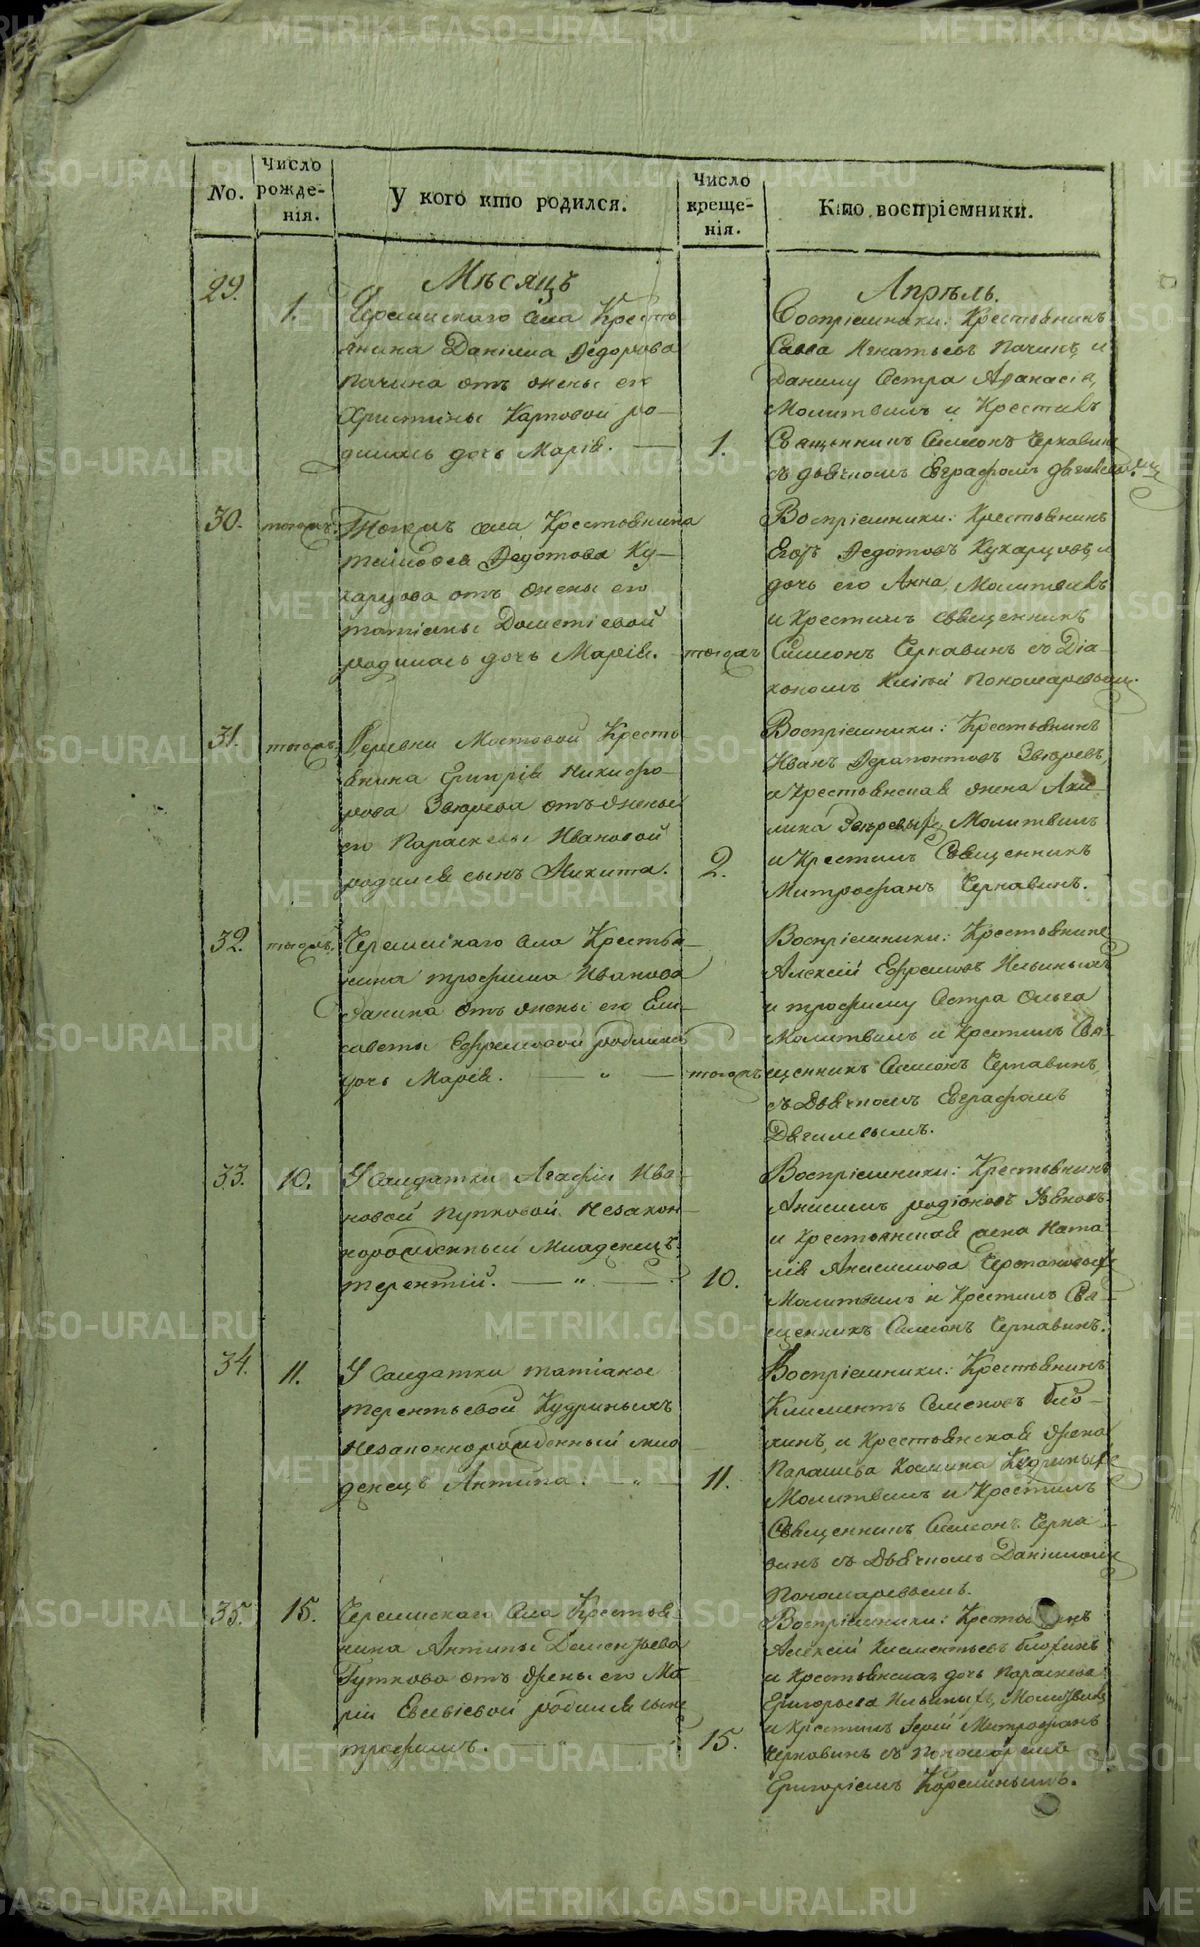 No.
Число рожде- нія.
У кого кто родился.
Число креще- нія.
Кто воспріемники.
Мѣсяцъ
Апрѣль.
29.
1.
Черемискаго села Кресть
янина Даніила Ѳедорова
Пачина отъ жены его
Христины Карповой ро-
дилась дочь Марія.
1.
Воспріемники: Крестьянинъ
Савва Игнатьевъ Пачинъ, и
Данилу Сестра Аѳанасія,
Молитвилъ и Крестилъ
Священникъ Симеонъ Чернавинъ
съ дьячкомъ Евграфомъ
30.
тогожъ
Тогожъ села Крестьянина
Тимоѳея Ѳедотова Ку-
харцова отъ жены его
татіаны Дометіевой
родилась дочь Марія.
тогожъ
Воспріемники: Крестьянинъ
Егоръ Ѳедотовъ Кухарцовъ и
дочь его Анна, Молитвилъ
и Крестилъ священникъ
Симеонъ Чернавинъ съ Діа-
кономъ Пономаревымъ.
31.
тогожъ
Деревни Мостовой Кресть-
янина Григорія Никифо-
рова Звѣрева отъ жены
его Параскевы Ивановой
родился сынъ Никита.
2.
Воспріемники: Крестьянинъ
Иванъ Ѳерапонтовъ Звѣревъ,
и Крестьянская жена Аки-
лина Звѣревыхъ, Молитвилъ
и Крестилъ Священникъ
Митрофанъ Чернавинъ.
32.
тогожъ
Черемискаго села Крестья-
нина трофима Иванова
отъ жены его Ели-
саветы Ефремовой родилась
дочь Марія. — " —
тогожъ
Воспріемники: Крестьянинъ
Алексій Ефремовъ Ильиныхъ
и трофиму Сестра Ольга
Молитвилъ и Крестилъ Свя-
щенникъ Симеонъ Чернавинъ,
съ Дьячкомъ Евграфомъ
Дягилевымъ.
33.
10.
У Солдатки Агафіи Ива-
новой Пупковой Незакон-
норожденный Младенецъ
терентій. — " —
10.
Воспріемники: Крестьянинъ
Анисимъ родіоновъ
и Крестьянская жена Ната-
лія Анисимова
Молитвилъ и Крестилъ Свя-
щенникъ Симеонъ Чернавинъ.
34.
11.
У Солдатки татіаны
терентьевой Кудриныхъ
Незаконнорожденный мла-
денецъ Антипа. — " —
11.
Воспріемники: Крестьянинъ
Климентъ Симеоновъ Бло-
хинъ, и Крестьянская жена
Козмина Кудриныхъ
Молитвилъ и Крестилъ
Священникъ Симеонъ Черна-
винъ съ Дьячкомъ Даніиломъ
Пономаревымъ.
35.
15.
Черемискаго Села Крестья
нина Антипы Дементьева
Гуткова отъ жены его Ма-
ріи Евсевіевой родился сынъ
трофимъ. — " —
15.
Воспріемники: Крестьянинъ
Алексій Климентьевъ Блохинъ
и Крестьянская дочь Параскева
Григорьева Ильиныхъ, Молитвилъ
и Крестилъ Іерей Митрофанъ
Чернавинъ съ Пономаремъ
Григоріемъ
METRIKI.GASO-URAL.RU